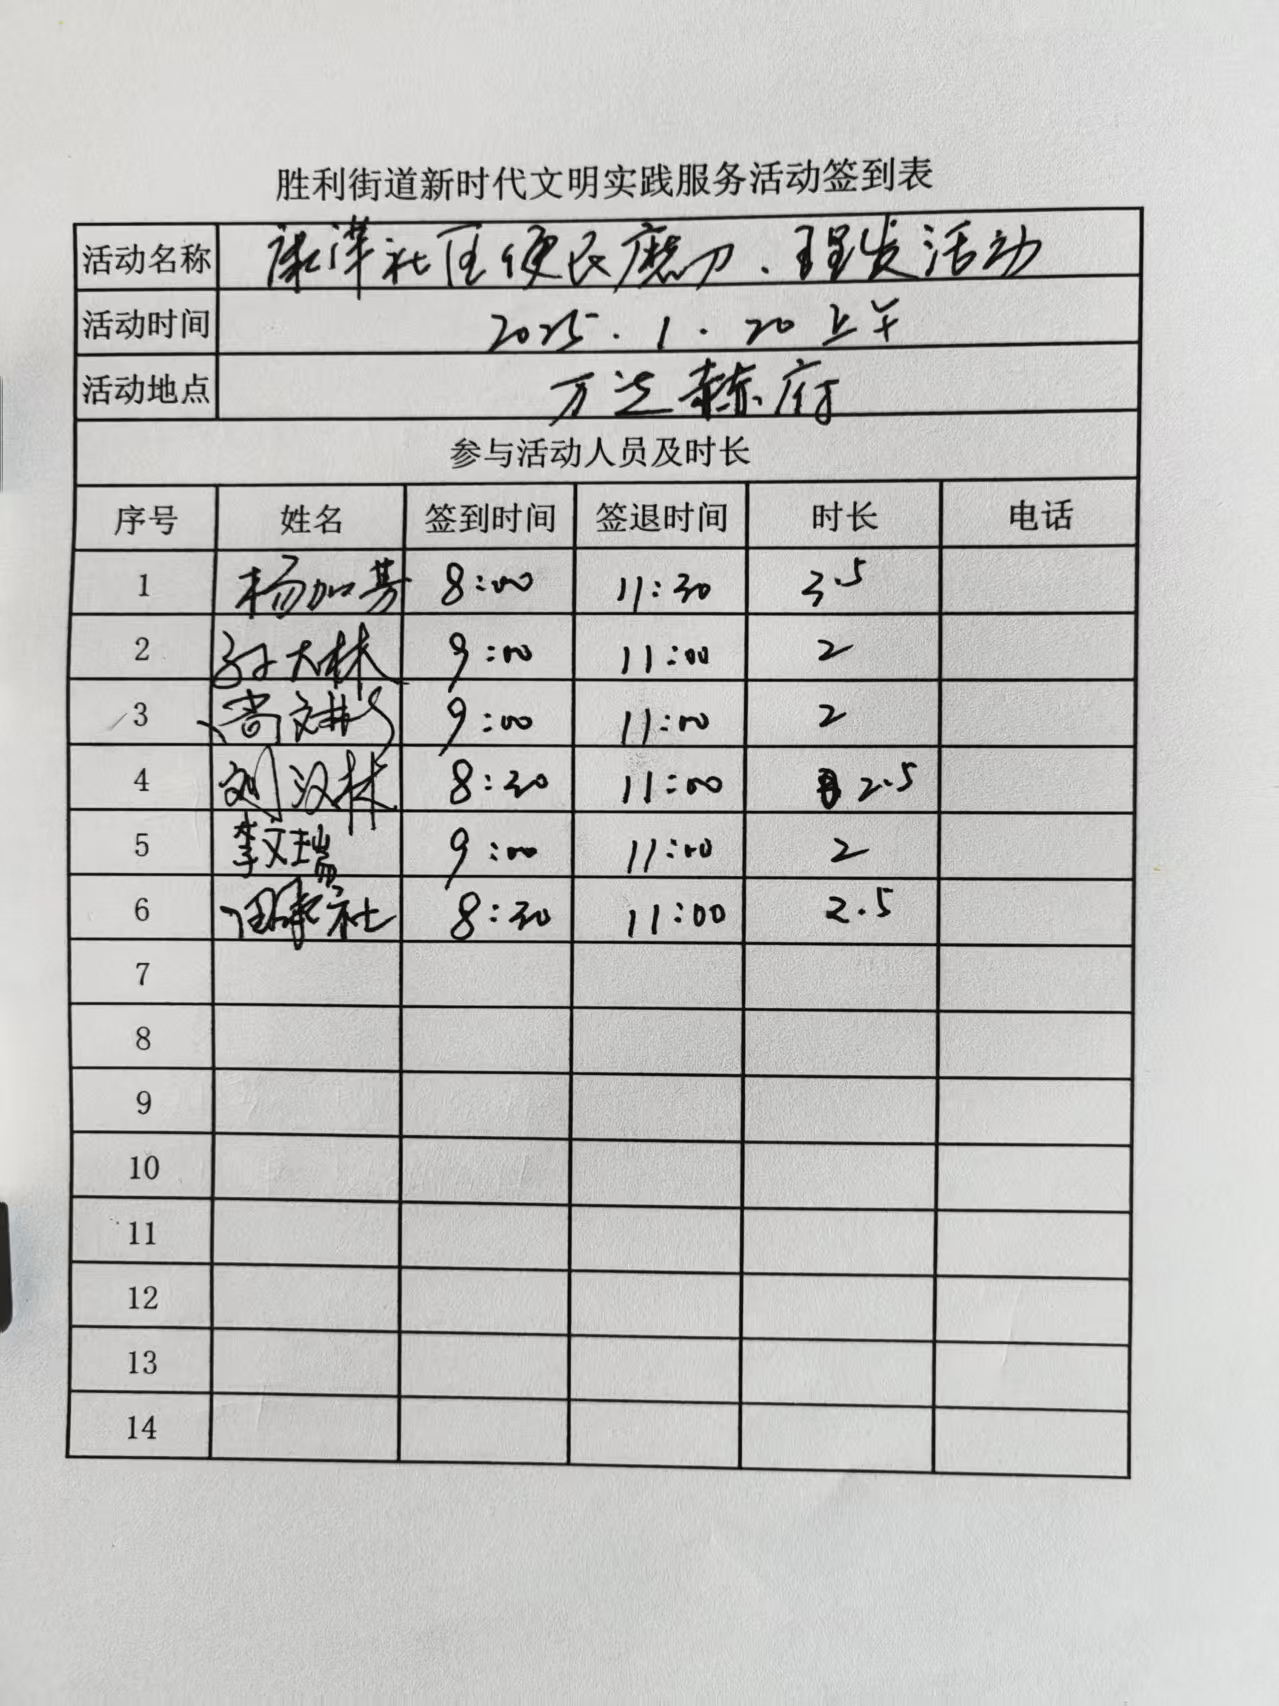 胜利街道新时代文明实践服务活动签到表
活动名称 康洋社区便民磨刀、理发活动
活动时间 2025.1.20上午
活动地点 万达赫府
参与活动人员及时长
序号 姓名 签到时间 签退时间 时长 电话
1 杨加芳 8:00 11:30 3.5
2 孙大林 9:00 11:00 2
3 9:00 11:00 2
4 刘汉林 8:30 11:00 2.5
5 李文瑞 9:00 11:00 2
6 8:30 11:00 2.5
7
8
9
10
11
12
13
14